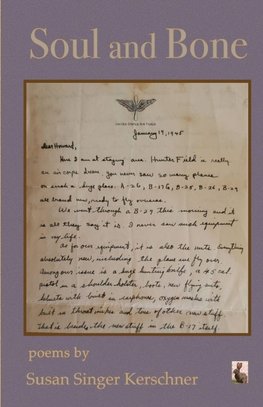 Soul and Bone
UNITED STATES AIR FORCE
January 19, 1945
Dear Howard,
Here I am at staging area. Hunter Field is really
an air corps dream. You never saw so many planes
on such a huge place. A-26, B-17G, B-25, B-26, B-29
all brand new, ready to fly overseas.
We went through a B-29 this morning and it
is all they say it is. I never saw such equipment
in my life.
As for our equipment, it is also the nuts. Everything
absolutely new, including the plane we fly over.
Among our issue is a huge hunting knife, a 45 cal.
pistol in a shoulder holster, boots, new flying suits,
helmets with built in earphones, oxygen masks with
built in throat mikes and tons of other new stuff.
That is besides the new stuff in the B-17 itself.
poems by
Susan Singer Kerschner